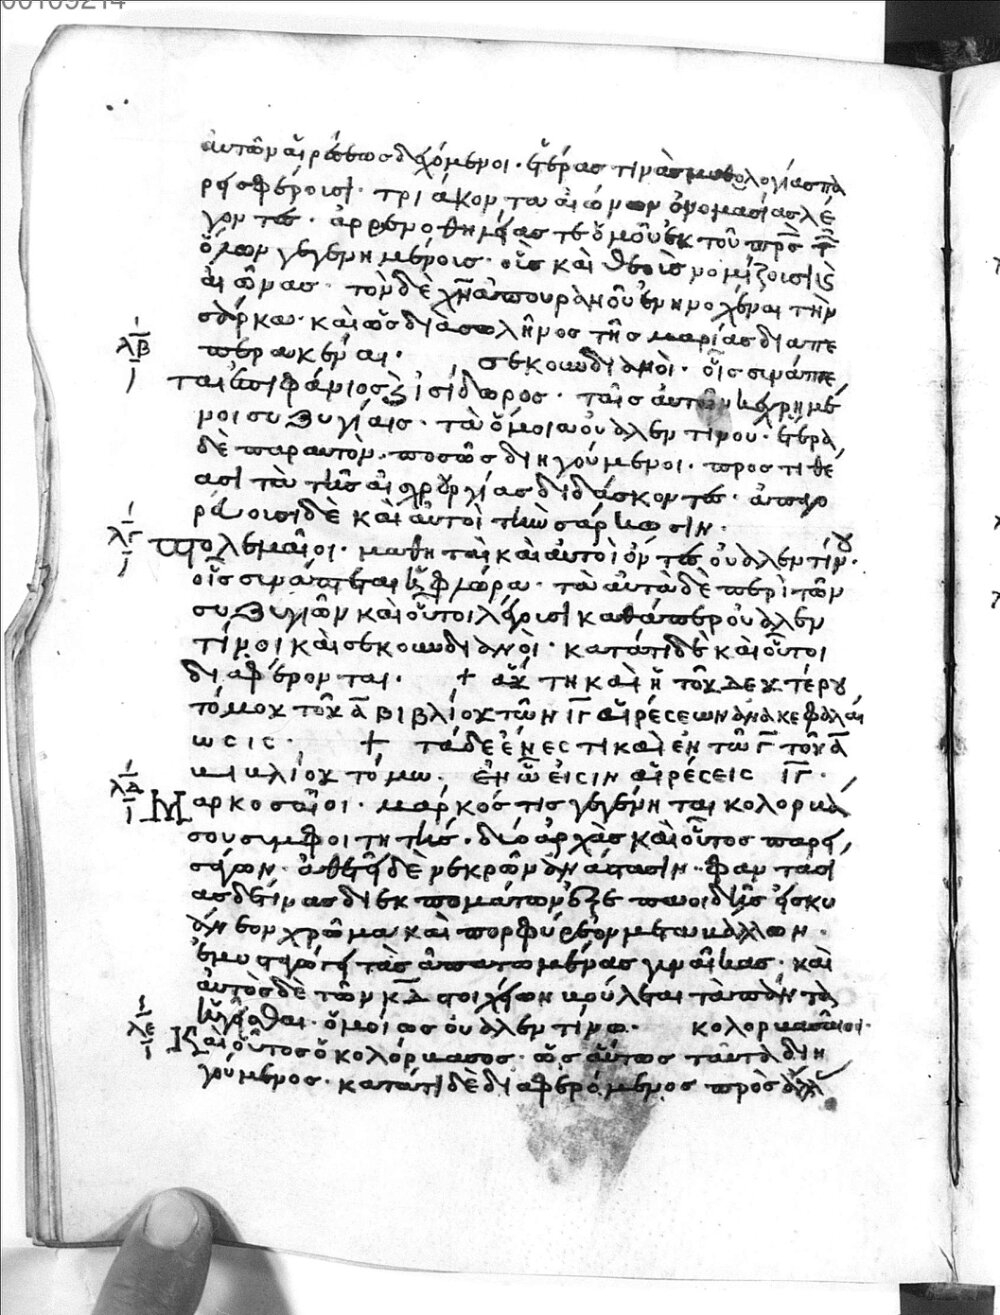 00109214
αὐτῶν αἱρέσεως δεχόμενοι· ἑτέρας τινὰς μυθολογίας πα
ρεισφέρουσι· τριάκοντα αἰώνων ὀνομασίας λέ
γοντες· ἀρρενοθηλείας τε ὁμοῦ ἐκ τοῦ πρς τ
ὅλων γεγενημένοις· οἷς καὶ θεοὺς νομίζουσι
αἰῶνας· τὸν δὲ χν ἀπ οὐρανοῦ ἐνηνοχέναι τὴν
σάρκα· καὶ ὡς διὰ σωλῆνος τῆς μαρίας διαπε
περακέναι·
λβ
σεκουνδιανοὶ· οἷς συνάπτε
ται ἐπιφάνιος ἰσίδωρος· ταῖς αὐτῶν κεχρημέ
νοι συζυγίαις· τὰ ὅμοια οὐαλεντίνου· ἕτερα
δὲ παρ αυτὸν ποσῶς διηγούμενοι· προστιθέ
ασι τὰ τῆς αἰσχρουργίας διδάσκοντες· ἀπαγο
ρεύουσι δὲ καὶ αὐτοὶ τὴν σάρκωσιν·
λγ
πτολεμαῖοι· μαθηταὶ καὶ αὐτοὶ ὄντες οὐαλεντίνου·
οἷς συνάπτεται ἡ φλώρα· τὰ αὐτὰ δὲ περὶ τῶν
συζυγιῶν καὶ οὗτοι λέγουσι καθάπερ οὐαλεν
τῖνοι καὶ σεκουνδιανοὶ· κατά τι δὲ καὶ οὗτοι
διαφέρονται· + αὕτη καὶ ἡ τοῦ δευτέρου
τόμου τοῦ α βιβλίου τῶν ιγ αἱρέσεων ἀνακεφαλαί
ωσις· + τάδε ἔνεστι καὶ ἐν τῶ γ τοῦ α
βιβλίου τόμω· ἐν ὧ εἰσὶν αἱρέσεις ιγ·
λδ
Μαρκοσαῖοι· μαρκός τις γεγένηται κολορβά
σου συμφοιτητής· δύο ἀρχὰς καὶ οὗτος παρει
σάγων· ἀθετεῖ δὲ νεκρῶν ἀνάστασιν· φαντασί
ας δέ τινας δι ἐκπομάτων ἐξ ἐπαοιδῆς ἐς κυ
άνεον χρῶμα καὶ πορφύρεον μεταβάλλων·
ἐμυσταγώγει τὰς ἀπατωμένας γυναῖκας· καὶ
αὐτὸς δὲ τῶν κδ στοιχείων βούλεται τὰ πάντα
ἡγεῖσθαι· ὁμοίως οὐαλεντίνω·
κολορβασαῖοι·
λε
Καὶ οὗτος ὁ κολόρβασος· ὡσαύτως ταὐτὰ διη
γούμενος· κατά τι δὲ διαφερόμενος πρὸς ἀλ